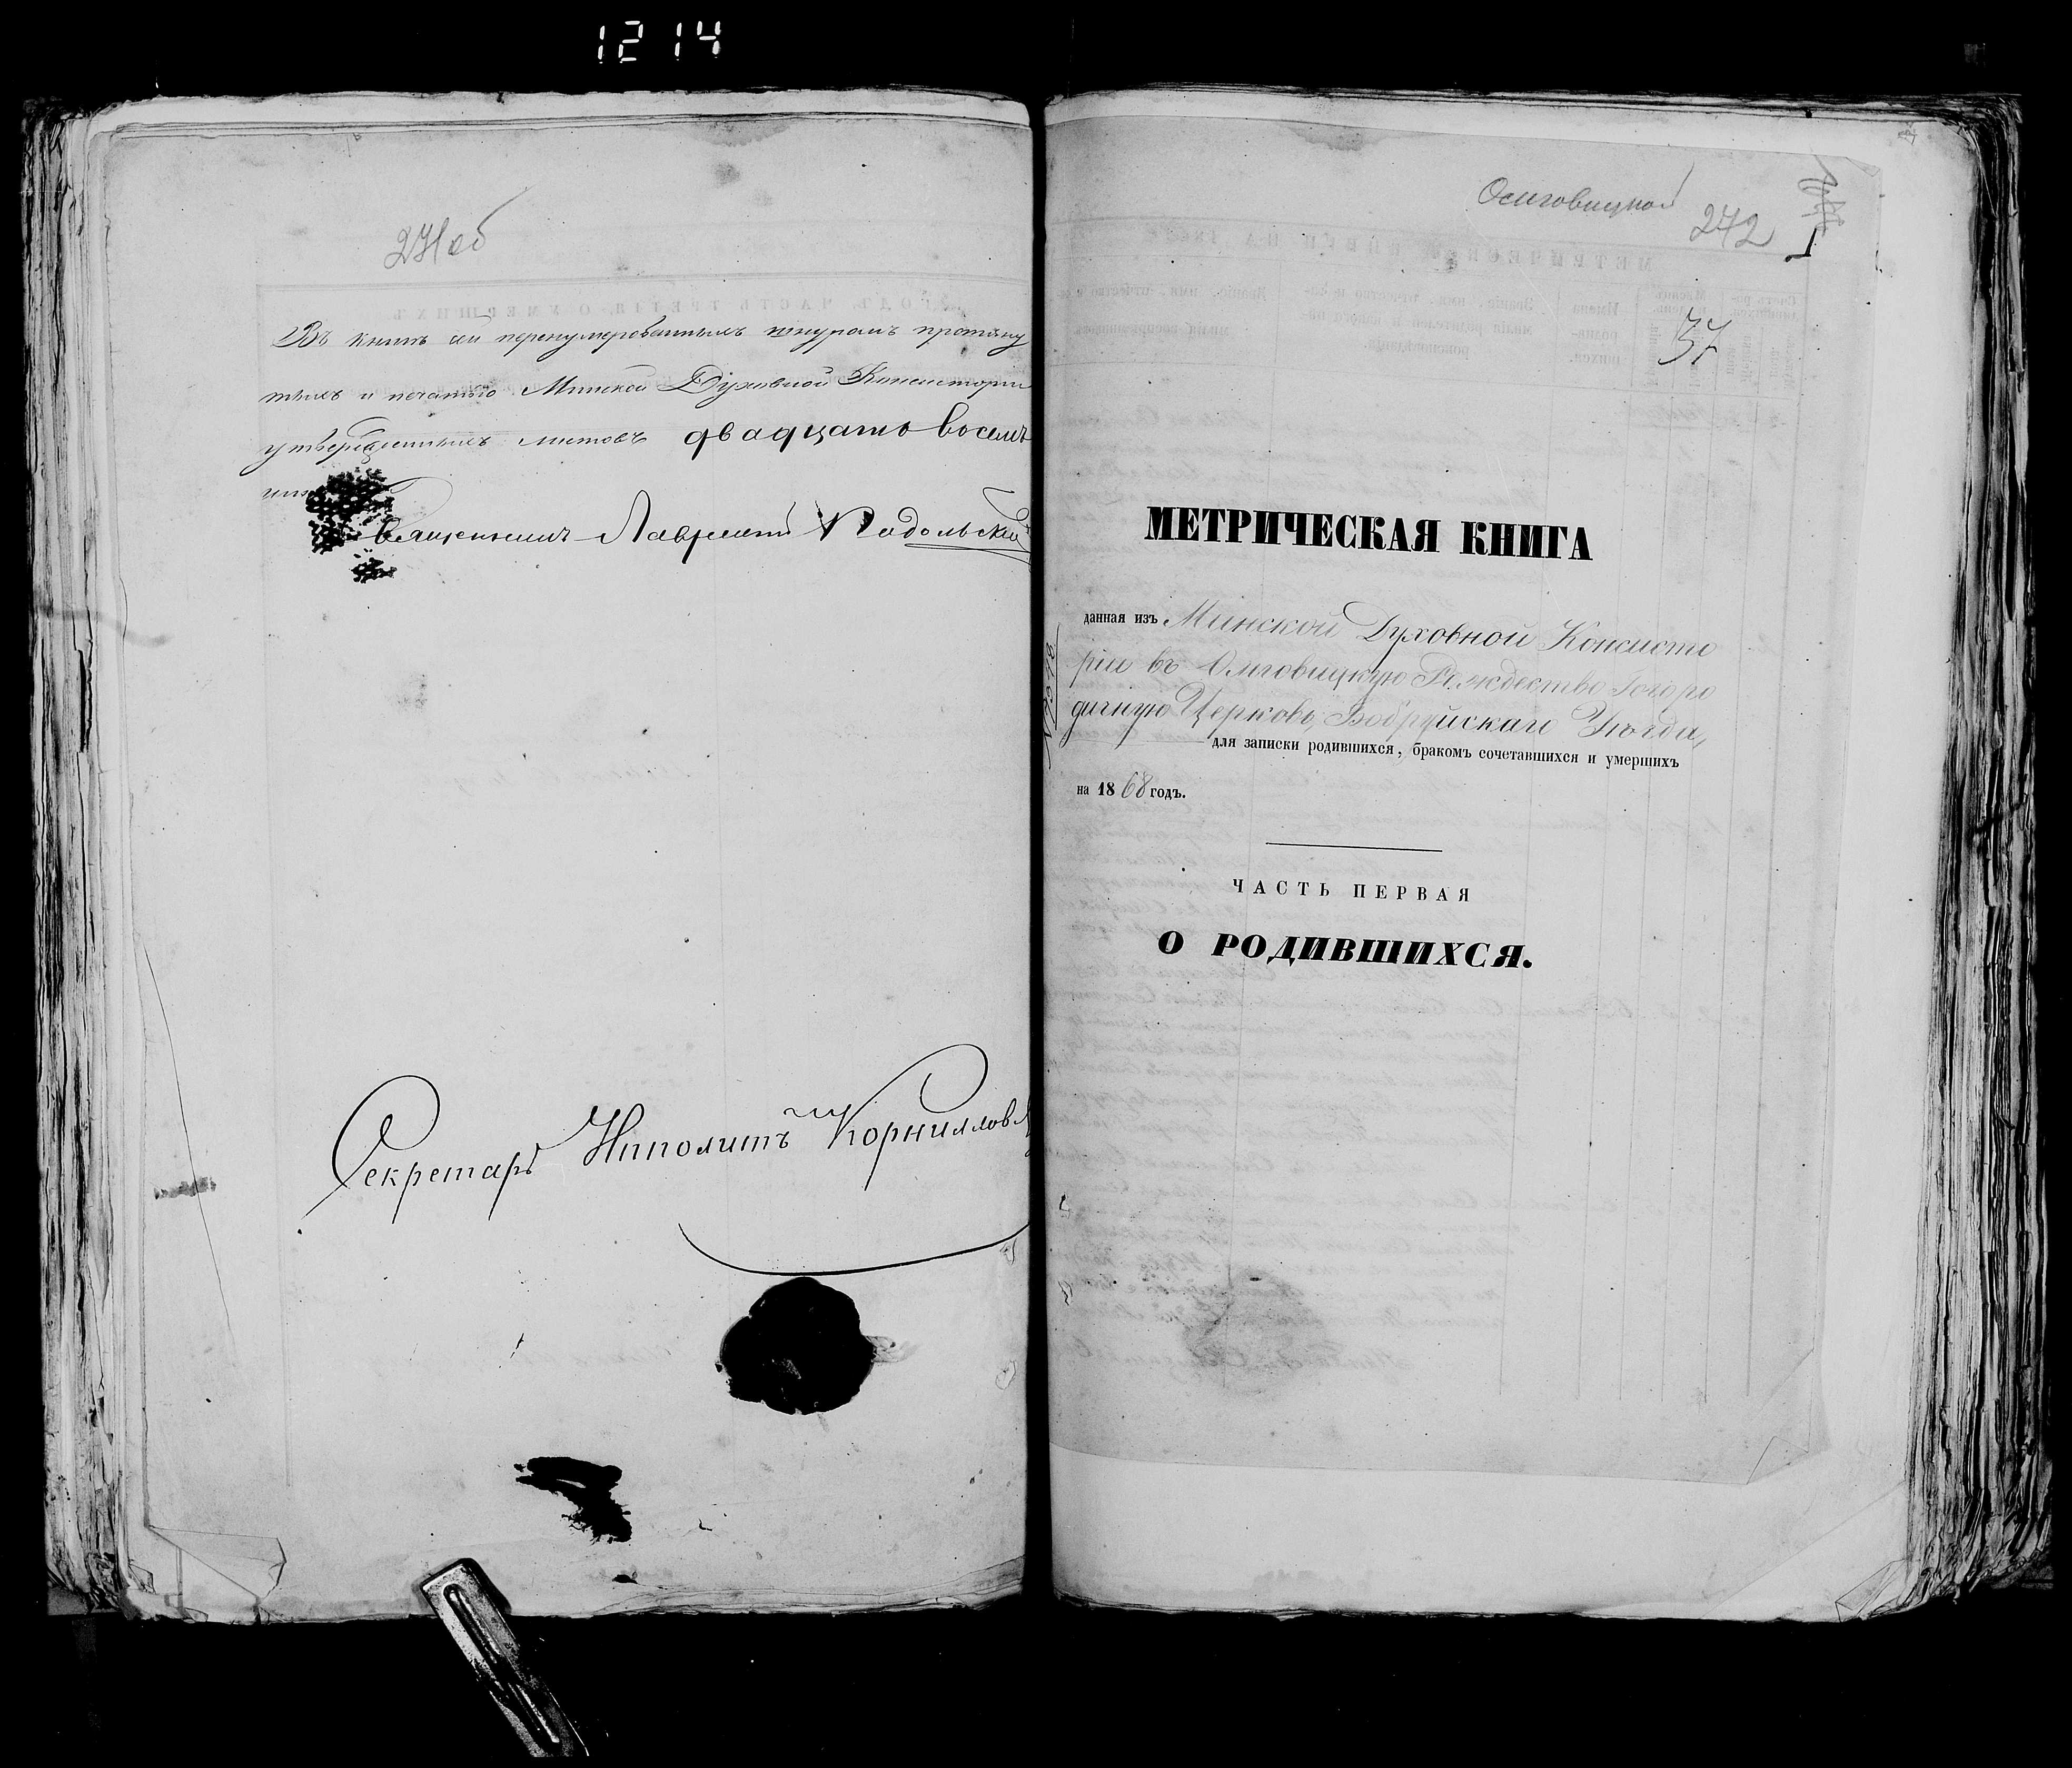 1214
271об
Въ книгѣ сей перенумерованныхъ шнуромъ протяну
тыхъ и печатью Минской Духовной Консисторіи
утвержденныхъ листовъ двадцать восемь
Священникъ Лаврентій Подольскій
Секретарь Ипполитъ Корнилов
Осиговицкой
272
1
37
МЕТРИЧЕСКАЯ КНИГА
данная изъ Минской Духовной Консисто
ріи въ Осиговицкую Рождество Богоро
дичную Церковь, Бобруйскаго Уѣзда,
для записки родившихся, бракомъ сочетавшихся и умершихъ
на 1868 годъ.
ЧАСТЬ ПЕРВАЯ
О РОДИВШИХСЯ.